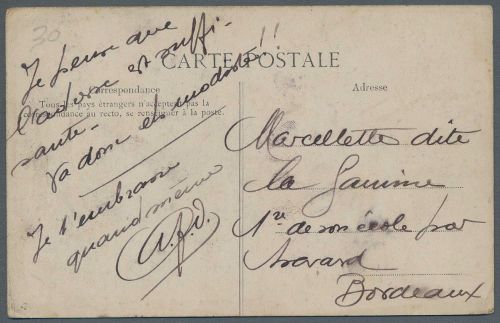 30
CARTE POSTALE
Correspondance
Tous les pays étrangers n'acceptent pas la
correspondance au recto, se renseigner à la poste.
Je pense que
l'adresse est suffi-
sante.
Va donc eh modiste!!
Je t'embrasse
quand même
Adresse
Marcellette dite
la Gamine
1re de son école par
Bordeaux